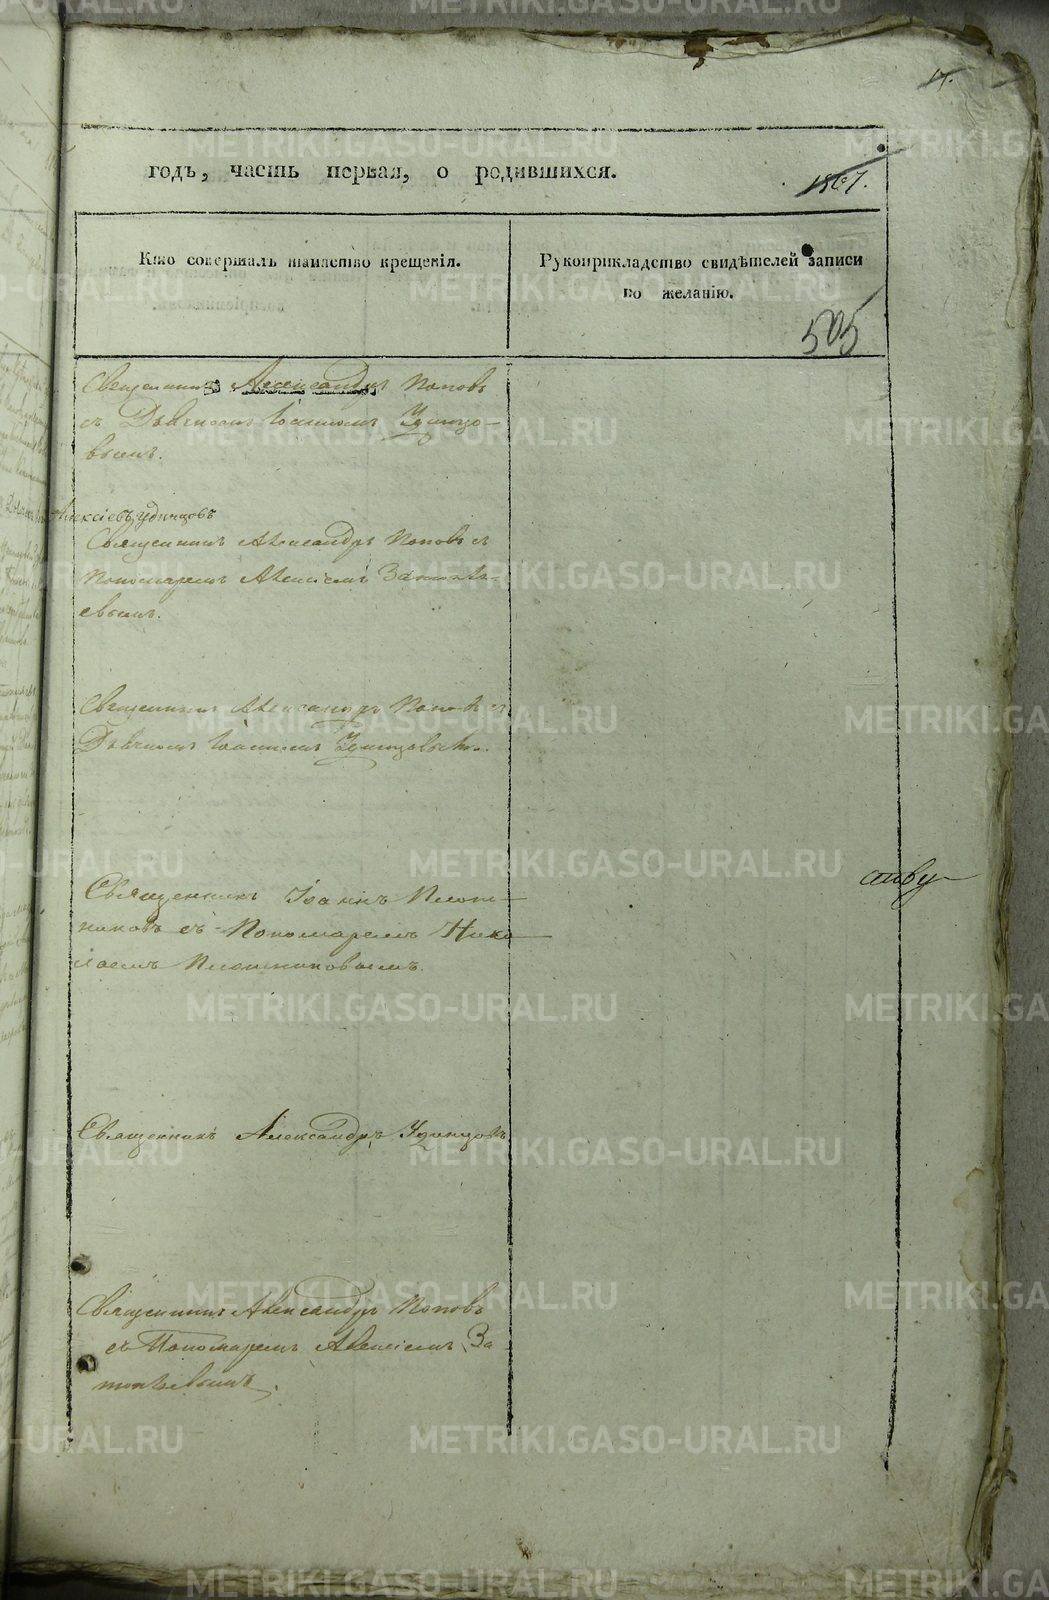 17.
годъ, часть первая, о родившихся.
1867.
Кто совершалъ таинство крещенія.
Рукоприкладство свидѣтелей записи
по желанію.
505
Священникъ Александръ Поповъ
съ Дьячкомъ Іоанномъ Удинцо-
вымъ.
Алексіевъ Удинцовъ
Священникъ Александръ Поповъ съ
Пономаремъ Алексіемъ Затопля-
евымъ.
Священникъ Александръ Поповъ съ
Дьячкомъ Іоанномъ Удинцовымъ.
Священникъ Іоаннъ Плот-
никовъ съ Пономаремъ Нико
лаемъ Плотниковымъ.
Священникъ Александръ Удинцовъ
Священникъ Александръ Поповъ
съ Пономаремъ Алексіемъ За-
METRIKI.GASO-URAL.RU